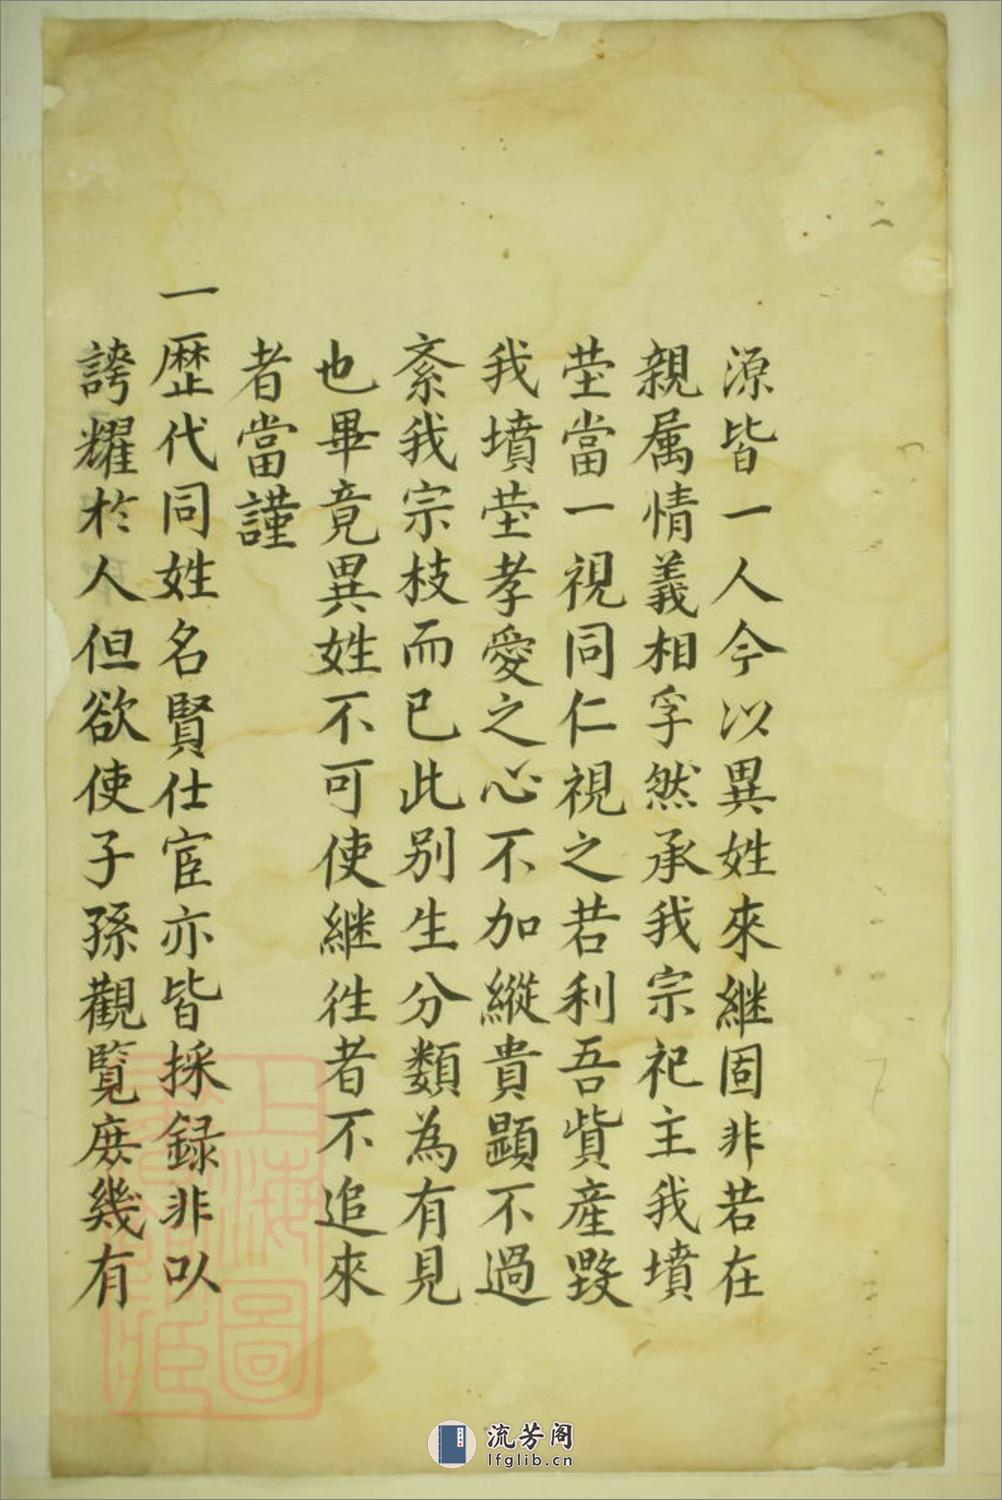 源皆一人今以異姓來継固非若在
親属情義相孚然承我宗祀主我墳
塋當一視同仁視之若利吾貲産毀
我墳塋孝愛之心不加縱貴顯不過
紊我宗枝而已此别生分類為有見
也畢竟異姓不可使継徃者不追來
者當謹
一歴代同姓名賢仕宦亦皆採録非以
誇耀於人但欲使子孫觀覽庻幾有
上海圖
流芳阁
lfglib.cn